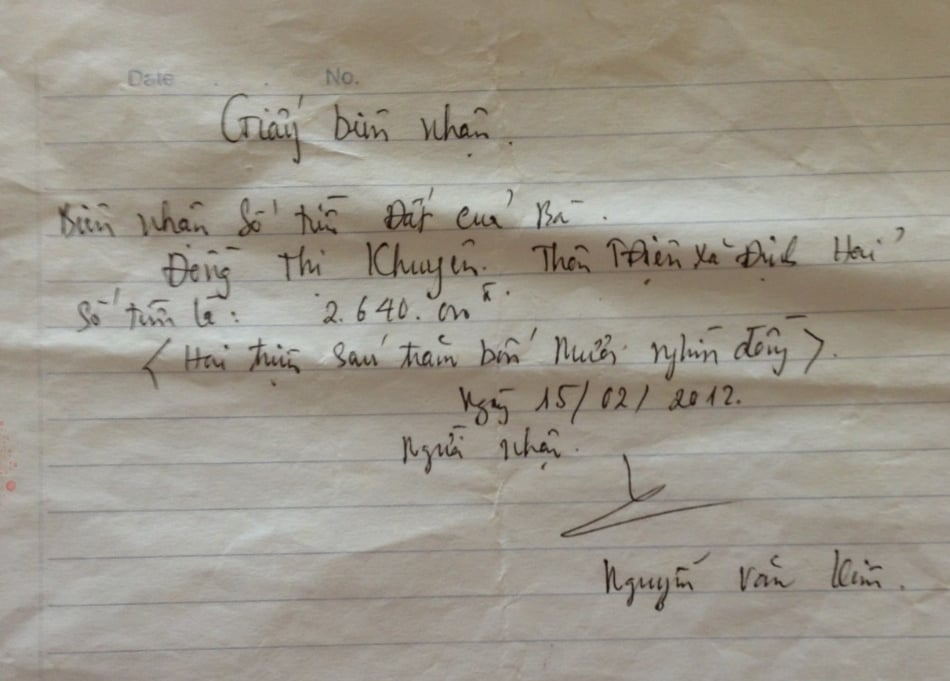 Date . . No.
Giấy biên nhận.
Biên nhận Số tiền Đất của Bà.
Đồng Thị Khuyên. Thôn Điện xã Định Hải
Số tiền là: 2.640.000đ.
(Hai triệu sáu trăm bốn mươi nghìn đồng).
Ngày 15/02/2012.
Người nhận.
Nguyễn Văn